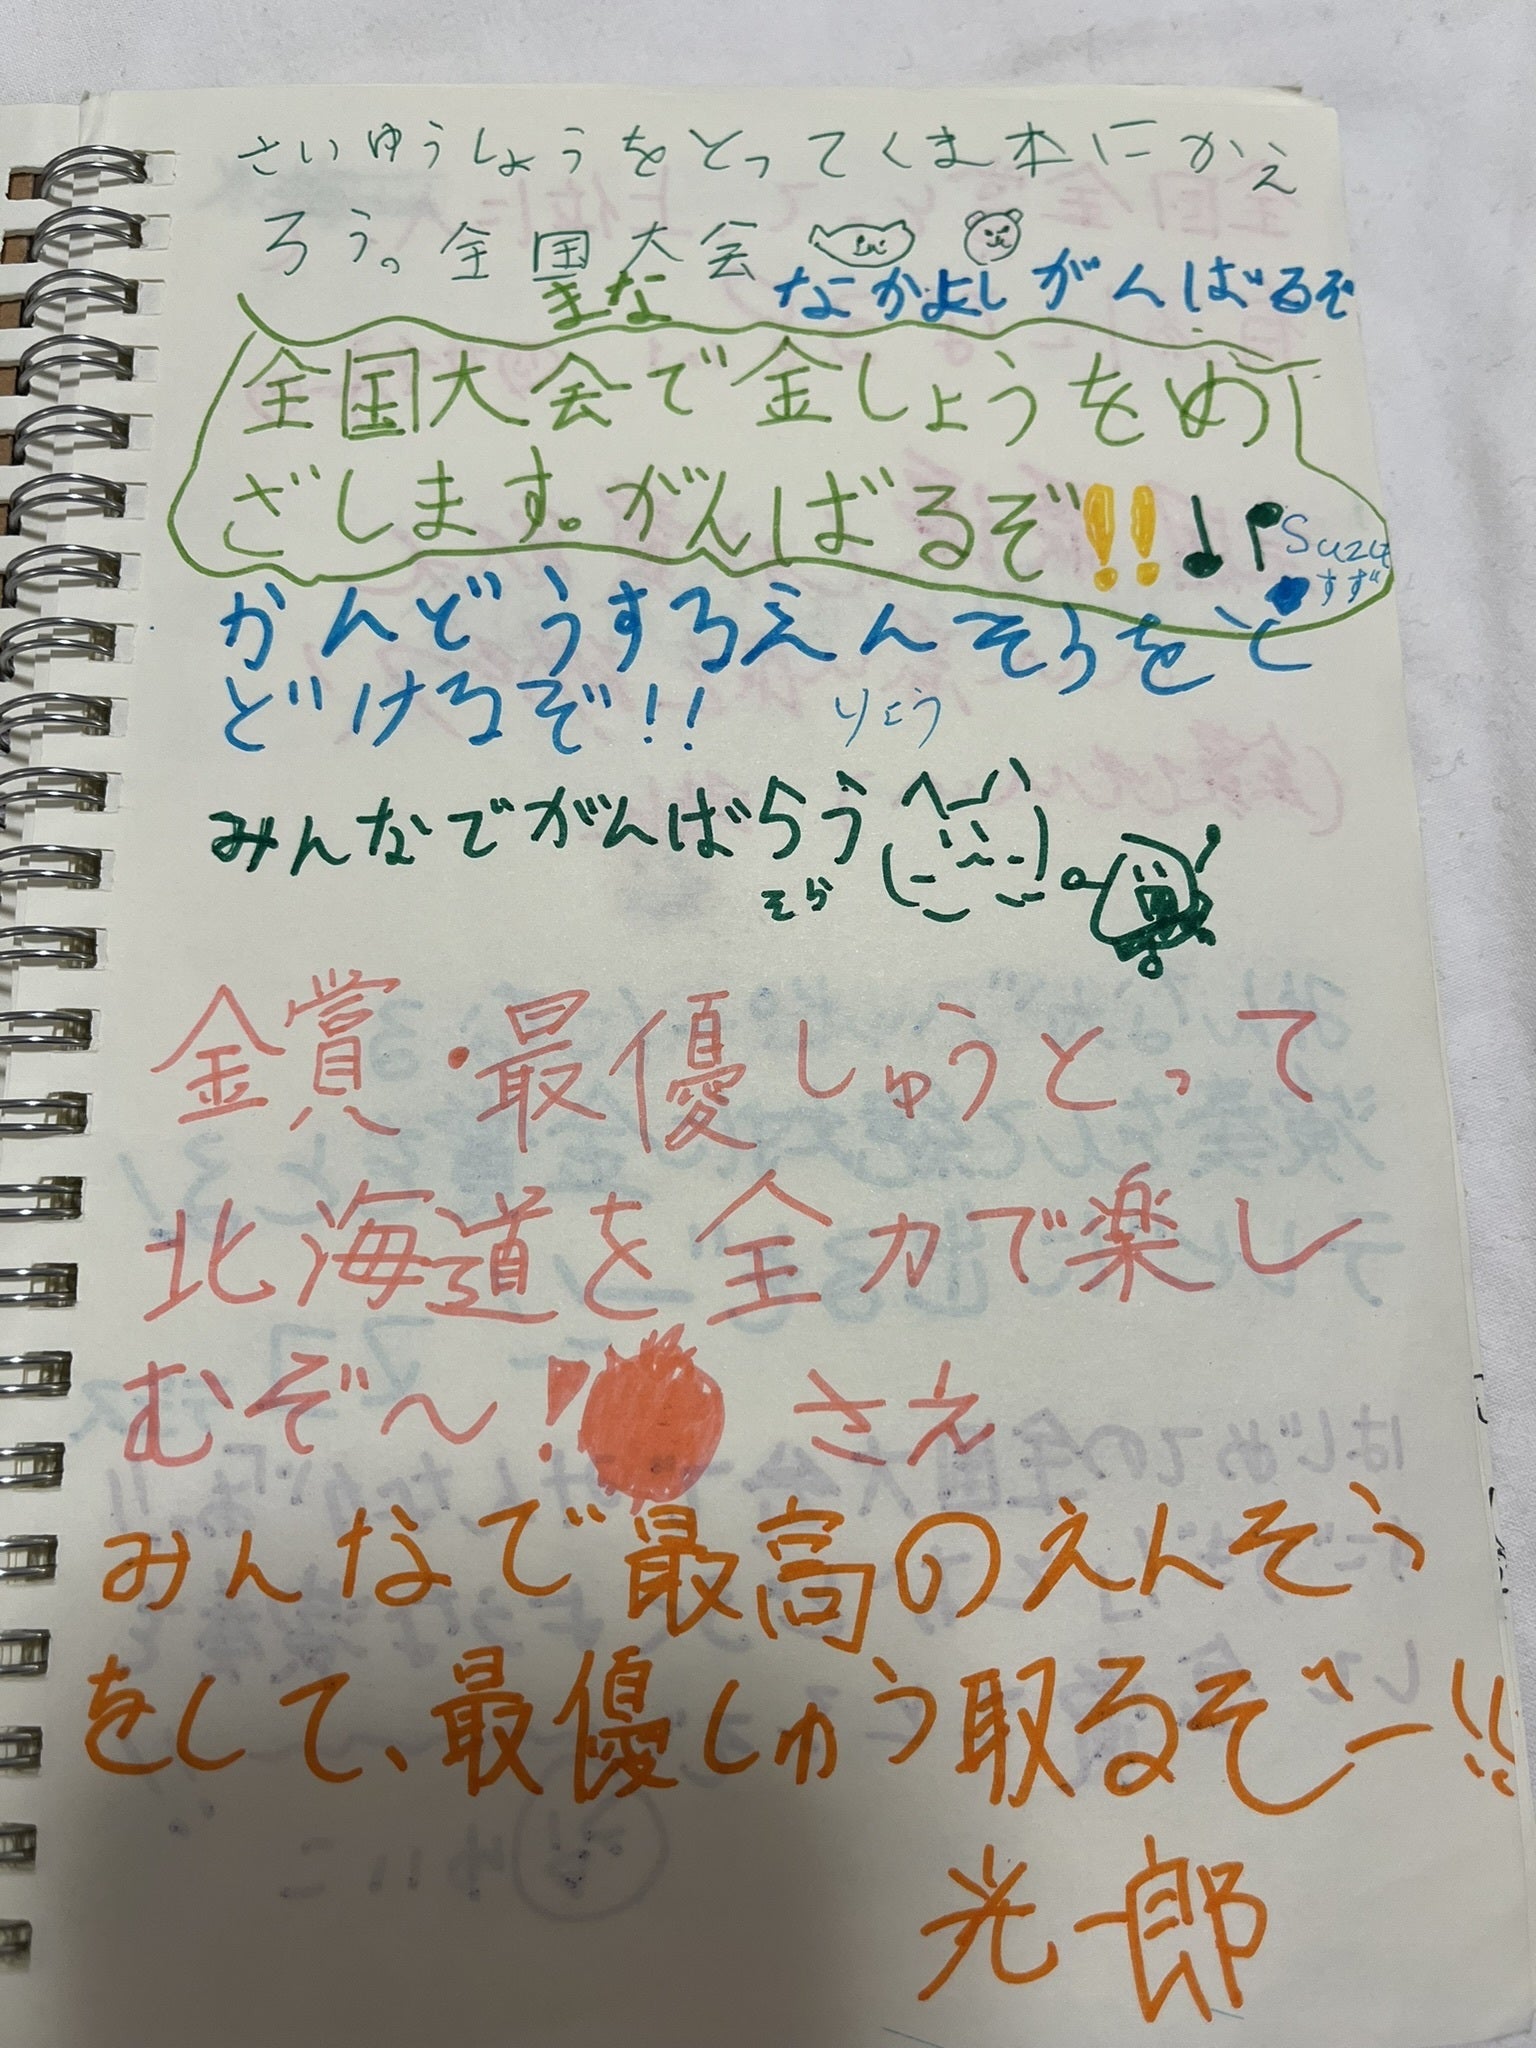 さいゆうしょうをとってくま本にかえ
ろう。全国大会
まな
なかよしがんばるぞ
全国大会で金しょうをめ
ざします。がんばるぞ!!♩♪
Suzu
すず
かんどうするえんそうをと
どけるぞ!!
りょう
みんなでがんばろう
そら
金賞・最優しゅうとって
北海道を全力で楽し
むぞ〜!
さえ
みんなで最高のえんそう
をして、最優しゅう取るぞー!!
光一郎